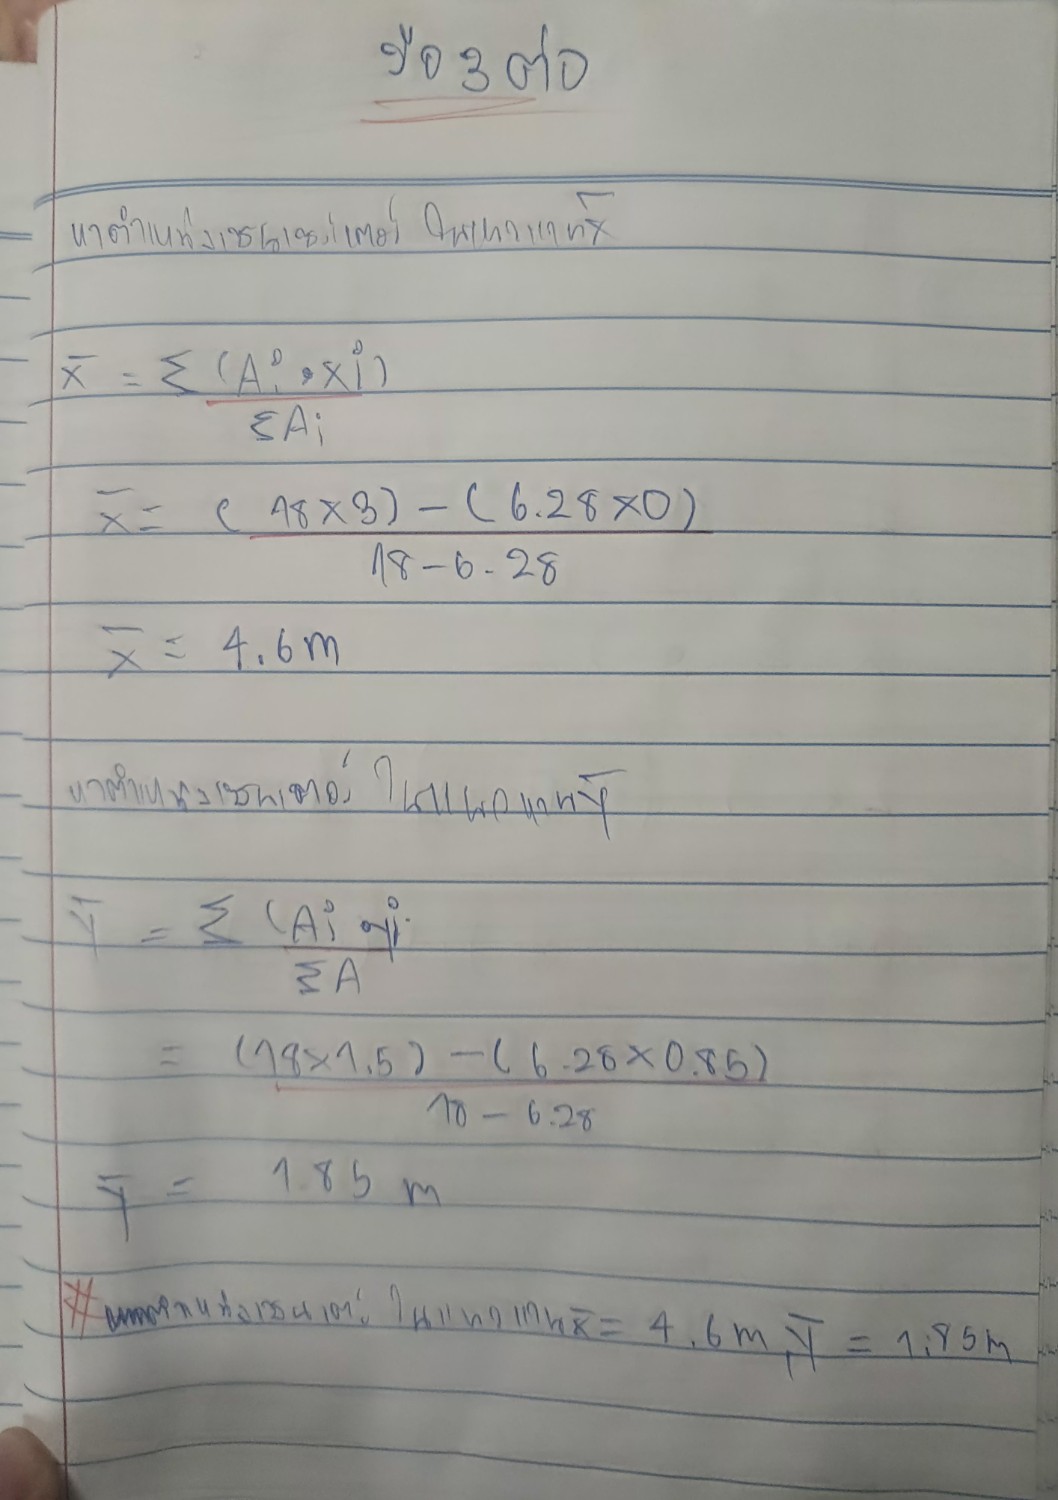 ข้อ 3 ต่อ
หาตำแหน่งเซนเตอร์ ในแนวแกน x̄
x̄ = Σ (Ai · xi)
ΣAi
x̄ = (18×3) - (6.28×0)
18-6.28
x̄ = 4.6m
หาตำแหน่งเซนเตอร์ ในแนวแกน Ȳ
Ȳ = Σ (Ai · yi
ΣA
= (18×1.5) - (6.28×0.85)
18 - 6.28
Ȳ = 1.85 m
# ในแนวแกน x̄ = 4.6m, Ȳ = 1.85m